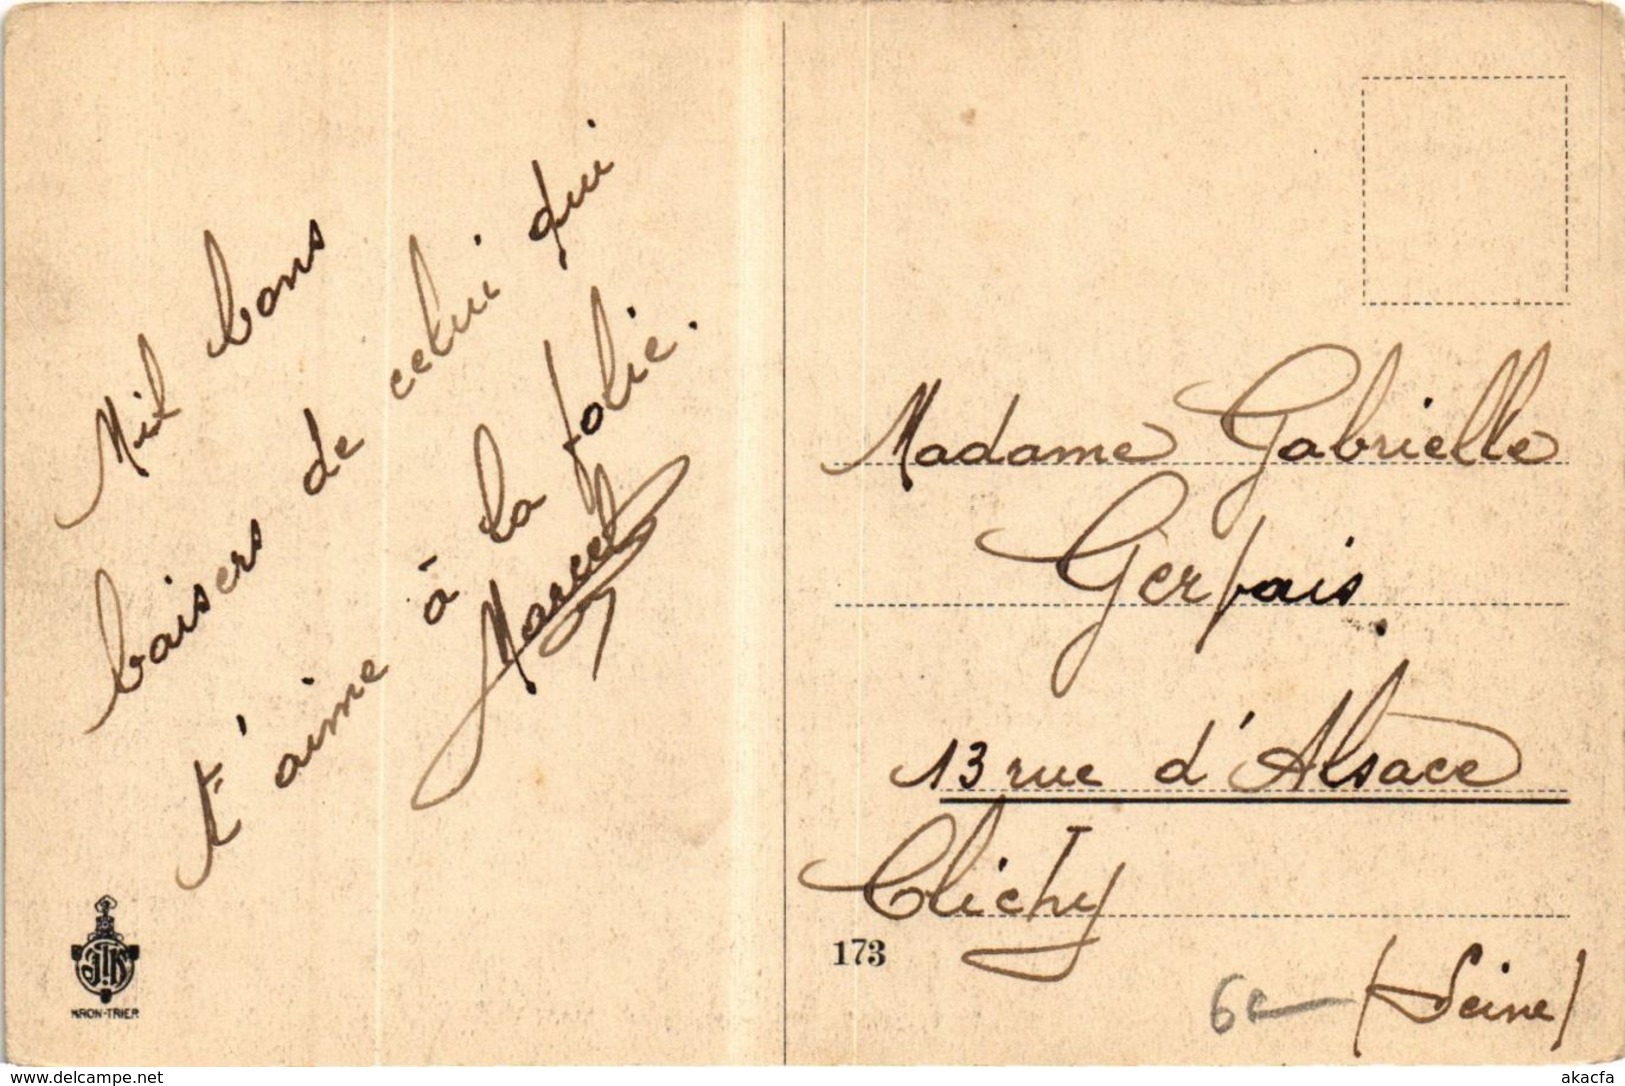 Mil bons
baisers de celui qui
t'aime à la folie.
Marcel
Madame Gabrielle
Gervais
13 rue d'Alsace
Clichy
(Seine)
173
6e
JTK
KRON-TRIER
www.delcampe.net
akacfa